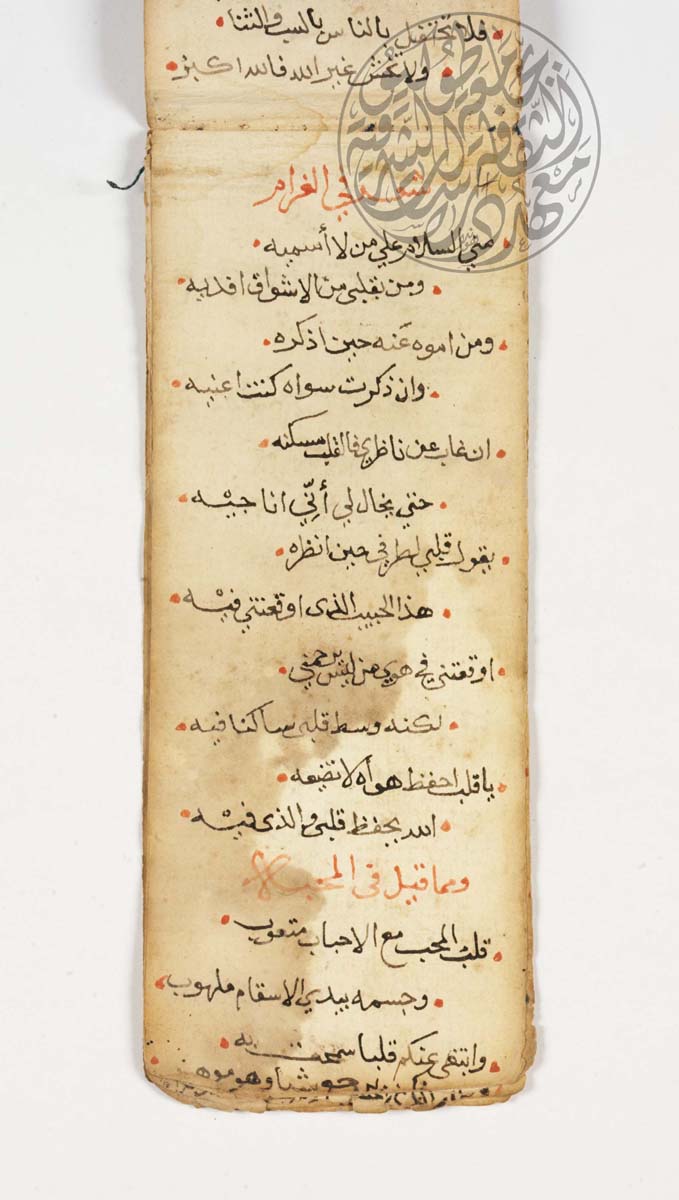 فلا تحتفل بالناس بالسب والثنا
ولا تخش غير الله فالله اكبر
شعر في الغرام
مني السلام علي من لا أسميه
ومن بقلبي من الاشواق افديه
ومن اموه عنه حين اذكره
وان ذكرت سواه كنت اعنيه
ان غاب عن ناظري فالقلب مسكنه
حتي يخال لي أنّي اناجيه
يقول قلبي لطرفي حين انظره
هذا الحبيب الذي اوقعتني فيه
اوقعتني في هوي من ليس يرحمني
لكنه وسط قلبي ساكنا فيه
يا قلب احفظ هواه لا تضيعه
الله يحفظ قلبي والذي فيه
ومما قيل في المحب
قلب المحب مع الاحباب متعوب
وجسمه بيدي الاسقام ملهوب
وابتغي عنكم قلبا سمحت به